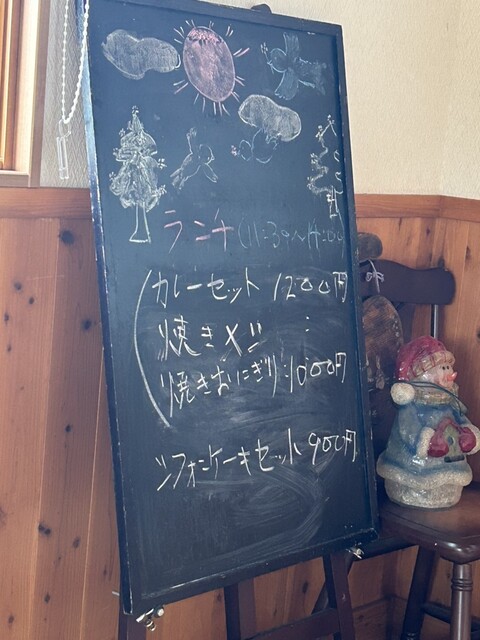 ランチ(11:30〜14:00
カレーセット 1200円
焼きメシ :
焼きおにぎり:1000円
シフォンケーキセット 900円